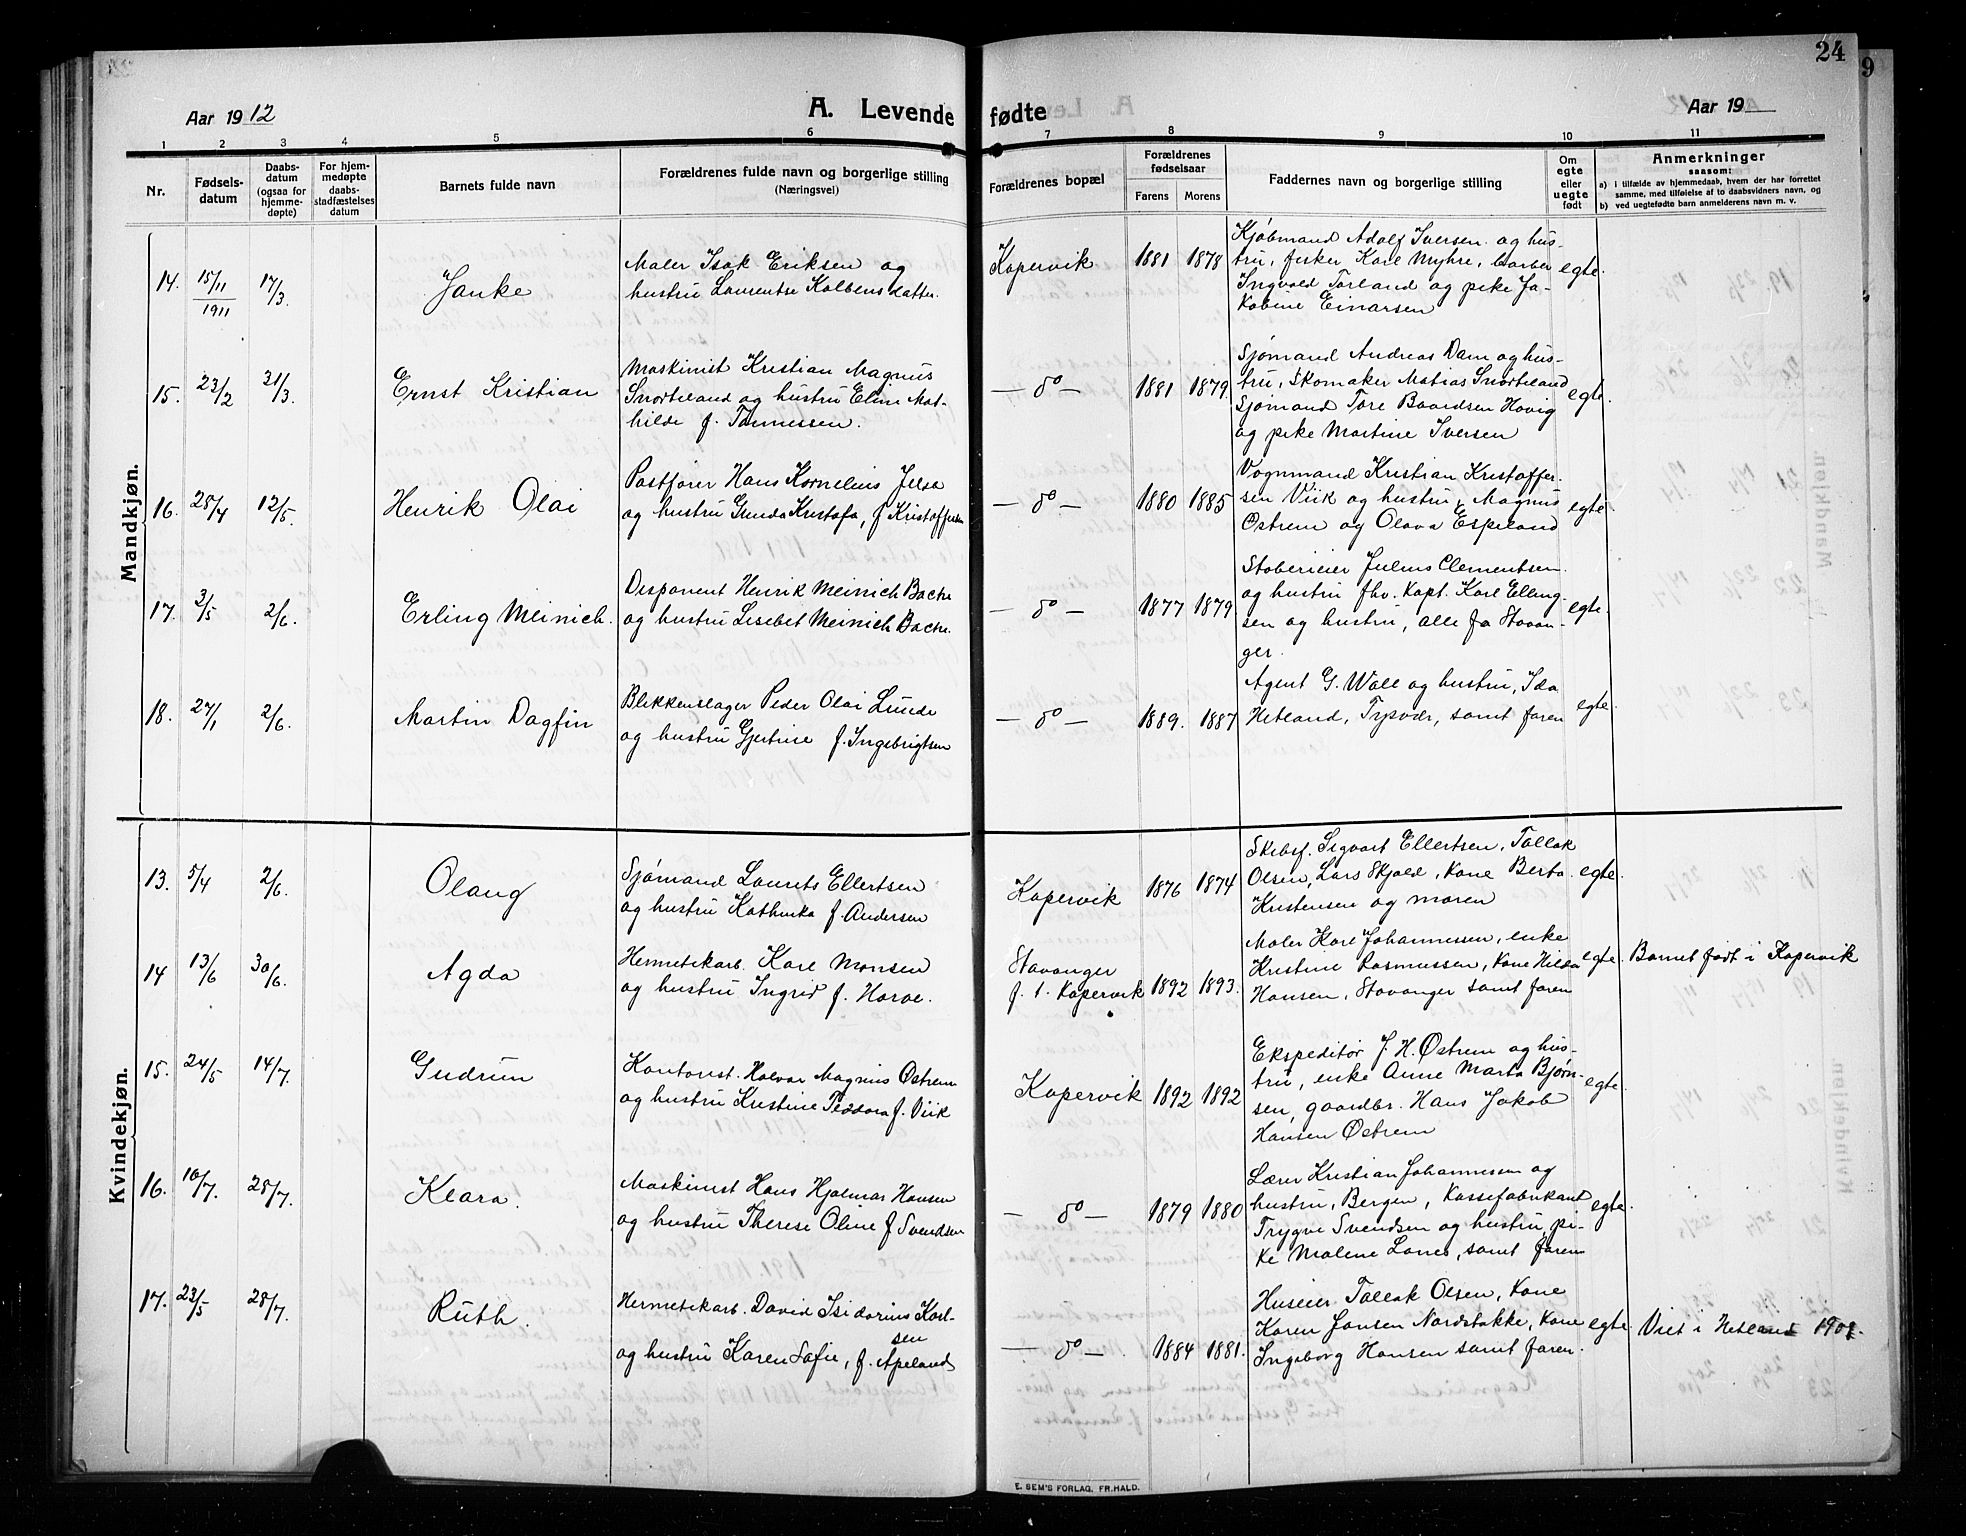 24
9
Aar 1912
A. Levende fødte
Aar 19
1 2 3 4 5 6 7 8 9 10 11
Nr.
Fødsels-
datum
Daabs-
datum
(ogsaa for
hjemme-
døpte)
For hjem-
medøpte
daabs-
stadfæstelses
datum
Barnets fulde navn
Forældrenes fulde navn og borgerlige stilling
(Næringsvei)
Forældrenes bopæl
Forældrenes
fødselsaar
Farens Morens
Faddernes navn og borgerlige stilling
Om
egte
eller
uegte
født
Anmerkninger
saasom:
a) i tilfælde av hjemmedaab, hvem der har forrettet
samme, med tilføielse av to daabsvidners navn, og
b) ved uegtefødte barn anmelderens navn m. v.
Mandkjøn.
14. 15/11 1911 17/3.
Janke
Maler Isak Eriksen og
hustru Laurentse Kolbensdatter.
Kopervik
1881 1878
Kjøbmand Adolf Iversen og hus-
tru, fisker Karl Myhre, barber
Ingvald Torland og pike Ja-
kobine Einarsen
egte.
15. 23/2 31/3.
Ernst Kristian
Maskinist Kristian Magnus
Snorteland og hustru Elim Mat-
hilde f. Tønnessen.
— do —
1881 1879.
Sjømand Andreas Dam og hus-
tru, Skomaker Matias Snorteland
Sjømand Tore Baardsen Hovig
og pike Martine Iversen
egte.
16. 28/4 12/5.
Henrik Olai
Postfører Hans Kornelius Jelsa
og hustru Gunda Kristofa, f Kristoffersen
— do —
1880 1885
Vognmand Kristian Kristoffer-
sen Viik og hustru, Magnus
Østrem og Olava Espeland
egte
17. 3/5 2/6.
Erling Meinich.
Disponent Henrik Meinich Bache
og hustru Lisebet Meinich Bache.
— do —
1877 1879
Støberieier Julius Clementsen
og hustru fhv. Kapt. Karl Elling-
sen og hustru, alle fa Stavan-
ger.
egte.
18. 27/1 2/6.
Martin Dagfin
Blikkenslager Peder Olai Lunde
og hustru Gjertine f. Ingebrigtsen
— do —
1889. 1887
Agent G. Wall og hustru, Ida
Hetland, Tysvær, samt faren
egte.
Kvindekjøn.
13. 5/4 2/6.
Olaug
Sjømand Laurits Ellertsen
og hustru Kathinka f. Andersen
Kopervik
1876 1874
Skibsf. Sigvart Ellertsen, Tallak
Olsen, Lars Skjold, Kone Berta
Kristensen og moren
egte.
14 13/6 30/6.
Agda
Hermetikarb. Karl Monsen
og hustru Ingrid f. Horve.
Stavanger
f. i. Kopervik
1892 1893.
Maler Karl Johannessen, enke
Kristine Rasmussen, Kone Hilda
Hansen, Stavanger samt faren
egte.
Barnet født i Kopervik
15. 24/5 14/7.
Gudrun
Kontorist. Halvar Magnus Østrem
og hustru Kristine Teodora f. Viik
Kopervik
1892 1892
Ekspeditør J. H. Østrem og hus-
tru, enke Anne Marta Bjørn-
sen, gaardbr. Hans Jakob
Hansen Østrem
egte.
16. 10/7. 28/7.
Klara.
Maskinist Hans Hjalmar Hansen
og hustru Therese Oline f Svendsen
— do —
1879 1880
Lærer Kristian Johannessen og
hustru, Bergen, Kassefabrikant
Trygve Svendsen og hustru, pi-
ke Malene Lanes, samt faren
egte.
17. 23/5 28/7.
Ruth.
Hermetikarb. David Isidorius Karl-
sen
og hustru Karen Sofie, f. Apeland
— do —
1884 1881.
Huseier Tallak Olsen, Kone
Karen Jansen Nordstokke, Kone
Ingeborg Hansen samt faren.
egte
Viet i Hetland
E. SEM'S FORLAG, FR.HALD.